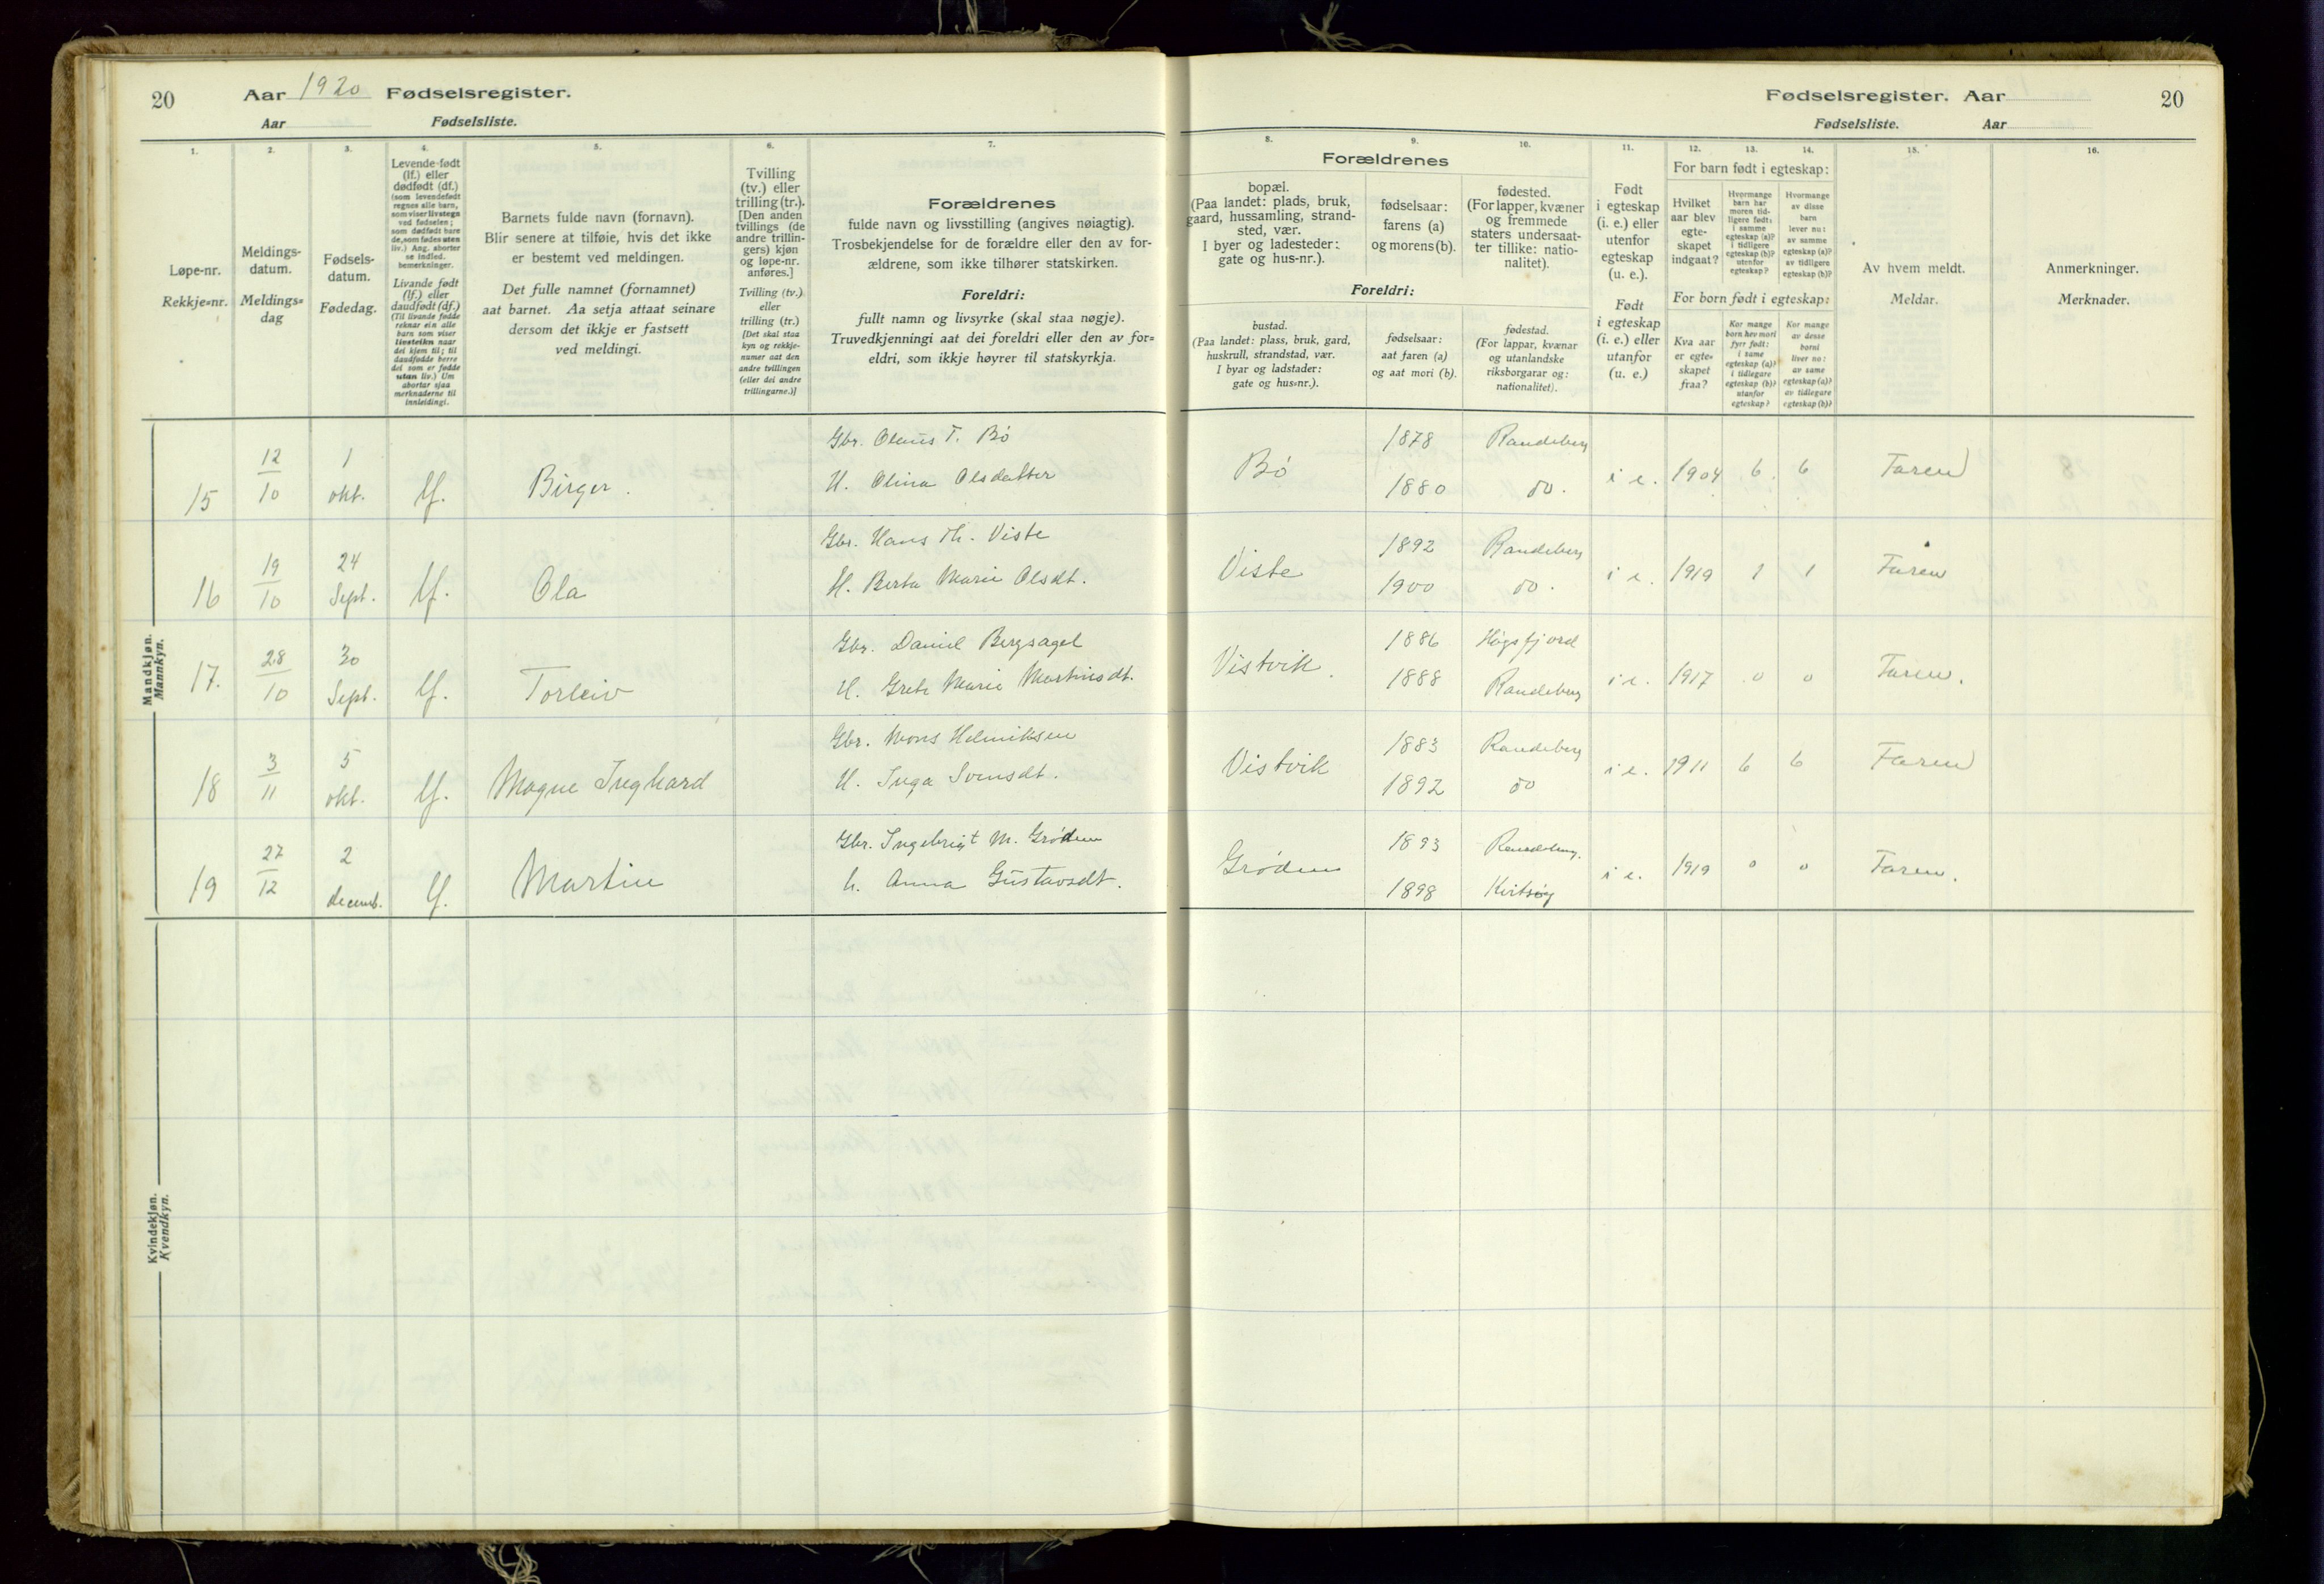 20 Aar 1920 Fødselsregister.
Aar Fødselsliste.
Fødselsregister. Aar 20
Fødselsliste. Aar
1. 2. 3. 4. 5. 6. 7. 8. 9. 10. 11. 12. 13. 14. 15. 16.
Løpe-nr.
Rekkje=nr.
Meldings-
datum.
Meldings=
dag
Fødsels-
datum.
Fødedag.
Levende-født
(lf.) eller
dødfødt (df.)
(som levendefødt
regnes alle barn,
som viser livstegn
ved fødselen;
som dødfødt bare
de, som fødes uten
liv.) Ang. aborter
se indled.
bemerkninger.
Livande født
(lf.) eller
daudfødt (df.)
(Til livande fødde
reknar ein alle
born som viser
livsteikn naar
dei kjem til; til
daudfødde berre
dei som er fødde
utan liv.) Um
abortar sjaa
merknaderne til
innleidingi.
Barnets fulde navn (fornavn).
Blir senere at tilføie, hvis det ikke
er bestemt ved meldingen.
Det fulle namnet (fornamnet)
aat barnet. Aa setja attaat seinare
dersom det ikkje er fastsett
ved meldingi.
Tvilling
(tv.) eller
trilling (tr.).
[Den anden
tvillings (de
andre trillin-
gers) kjøn
og løpe-nr.
anføres.]
Tvilling (tv.)
eller
trilling (tr.)
[Det skal staa
kyn og rekkje-
numer aat den
andre tvillingen
(eller dei andre
trillingarne.)]
Forældrenes
fulde navn og livsstilling (angives nøiagtig).
Trosbekjendelse for de forældre eller den av for-
ældrene, som ikke tilhører statskirken.
Foreldri:
fullt namn og livsyrke (skal staa nøgje).
Truvedkjenningi aat dei foreldri eller den av for=
eldri, som ikkje høyrer til statskyrkja.
Forældrenes
bopæl.
(Paa landet: plads, bruk,
gaard, hussamling, strand-
sted, vær.
I byer og ladesteder:
gate og hus-nr.).
fødselsaar:
farens (a)
og morens (b).
fødested.
(For lapper, kvæner
og fremmede
staters undersaat-
ter tillike: natio-
nalitet).
Foreldri:
bustad.
(Paa landet: plass, bruk, gard,
huskrull, strandstad, vær.
I byar og ladstader:
gate og hus=nr.).
fødselsaar:
aat faren (a)
og aat mori (b).
fødestad.
(For lappar, kvænar
og utanlandske
riksborgarar og:
nationalitet).
Født
i egteskap
(i. e.) eller
utenfor
egteskap
(u. e.).
Født
i egteskap
(i. e.) eller
utanfor
(u. e.)
For barn født i egteskap:
Hvilket
aar blev
egte-
skapet
indgaat?
Hvormange
barn har
moren tid-
ligere født:
i samme
egteskap (a)?
i tidligere
egteskap (b)?
utenfor
egteskap?
Hvormange
av disse
barn
lever nu:
av samme
egteskap (a)?
av tidligere
egteskap (b)?
For born født i egteskap:
Kva aar
er egte=
skapet
fraa?
Kor mange
born hev mori
fyrr født:
i same
egteskap (a)?
i tidlegare
egteskap (b)?
utanfor
egteskap?
Kor mange
av desse
borni
liver no:
av same
egteskap (a)?
av tidlegare
egteskap (b)?
Av hvem meldt.
Meldar.
Anmerkninger.
Merknader.
Mandkjøn.
Mannkyn.
Gbr. Olaus T. Bø 1878 Randeberg
15 12/10 1 okt. lf. Birger. H. Olina Olsdatter Bø 1880 do. i e. 1904 6 6 Faren
Gbr. Hans Th. Viste 1892 Randeberg
16 19/10 24 Sept. lf. Ola H. Berta Marie Olsdt. Viste 1900 do. i e. 1919 1 1 Faren
Gbr. Daniel Bergsagel 1886 Høgsfjord
17. 28/10 30 Sept. lf. Torleiv H. Grete Marie Martinsdt. Vistvik. 1888 Randeberg i e. 1917 0 0 Faren.
Gbr. Mons Helmiksen 1883 Randeberg
18 3/11 5 okt. lf. Magne Inghard H. Inga Svensdt. Vistvik 1892 do i e. 1911 6 6 Faren
Gbr. Ingebrigt M. Grødem 1893 Randeberg.
19 27/12 2 decemb. lf. Martin h. Anna Gustavsdt. Grødem 1898 Kvitsøy i e. 1919 0 0 Faren.
Kvindekjøn.
Kvendkyn.